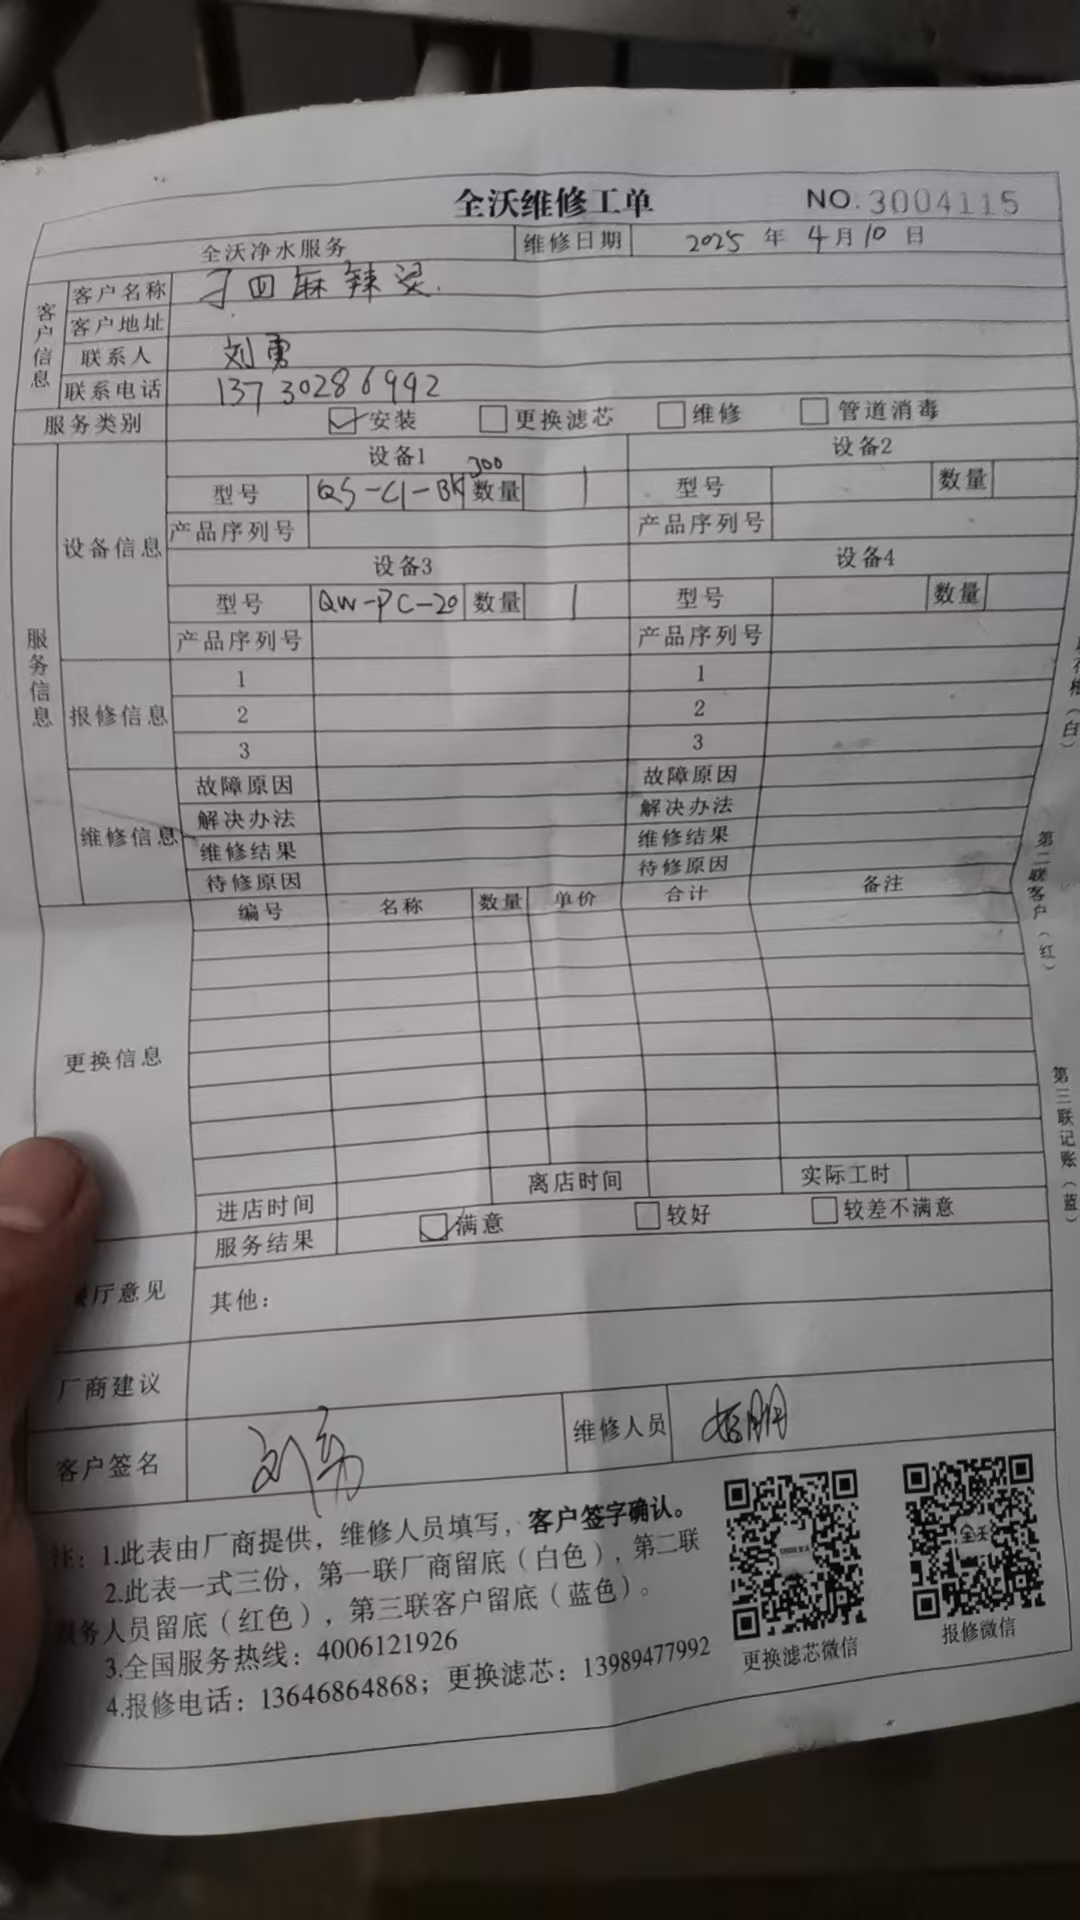 全沃维修工单 NO.3004115
全沃净水服务 维修日期 2025年4月10日
客户信息
客户名称 刁四麻辣烫.
客户地址
联系人 刘勇
联系电话 13730286992
服务类别 安装 更换滤芯 维修 管道消毒
服务信息
设备信息
设备1 设备2
型号 QS-C1-BK300 数量 1 型号 数量
产品序列号 产品序列号
设备3 设备4
型号 QW-PC-20 数量 1 型号 数量
产品序列号 产品序列号
报修信息
1 1
2 2
3 3
维修信息
故障原因 故障原因
解决办法 解决办法
维修结果 维修结果
待修原因 待修原因
更换信息
编号 名称 数量 单价 合计 备注
进店时间 离店时间 实际工时
服务结果 满意 较好 较差不满意
厅意见 其他：
厂商建议
客户签名 刘勇 维修人员
注：1.此表由厂商提供，维修人员填写，客户签字确认。
2.此表一式三份，第一联厂商留底（白色），第二联
服务人员留底（红色），第三联客户留底（蓝色）。
3.全国服务热线：4006121926
4.报修电话：13646864868；更换滤芯：13989477992
更换滤芯微信
全沃
报修微信
（白）
第二联客户（红）
第三联记账（蓝）